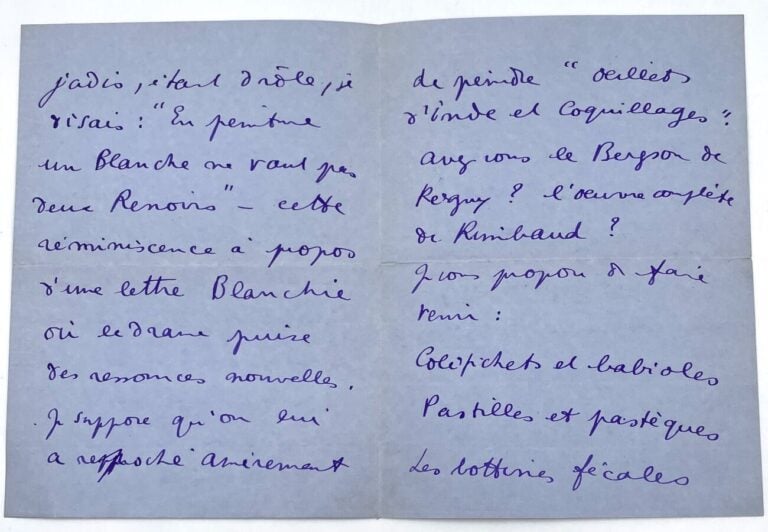 jadis, étant drôle, je
disais : "En peinture
un Blanche ne vaut pas
deux Renoirs" – cette
réminiscence à propos
d'une lettre Blanchie
où le drame puise
des ressources nouvelles.
Je suppose qu'on lui
a reproché amèrement
de peindre "œillets
d'Inde et Coquillages".
avez vous le Bergson de
Peguy ? l'œuvre complète
de Rimbaud ?
Je vous propose de faire
venir :
Colifichets et babioles
Pastilles et pastèques
Les bottines fécales